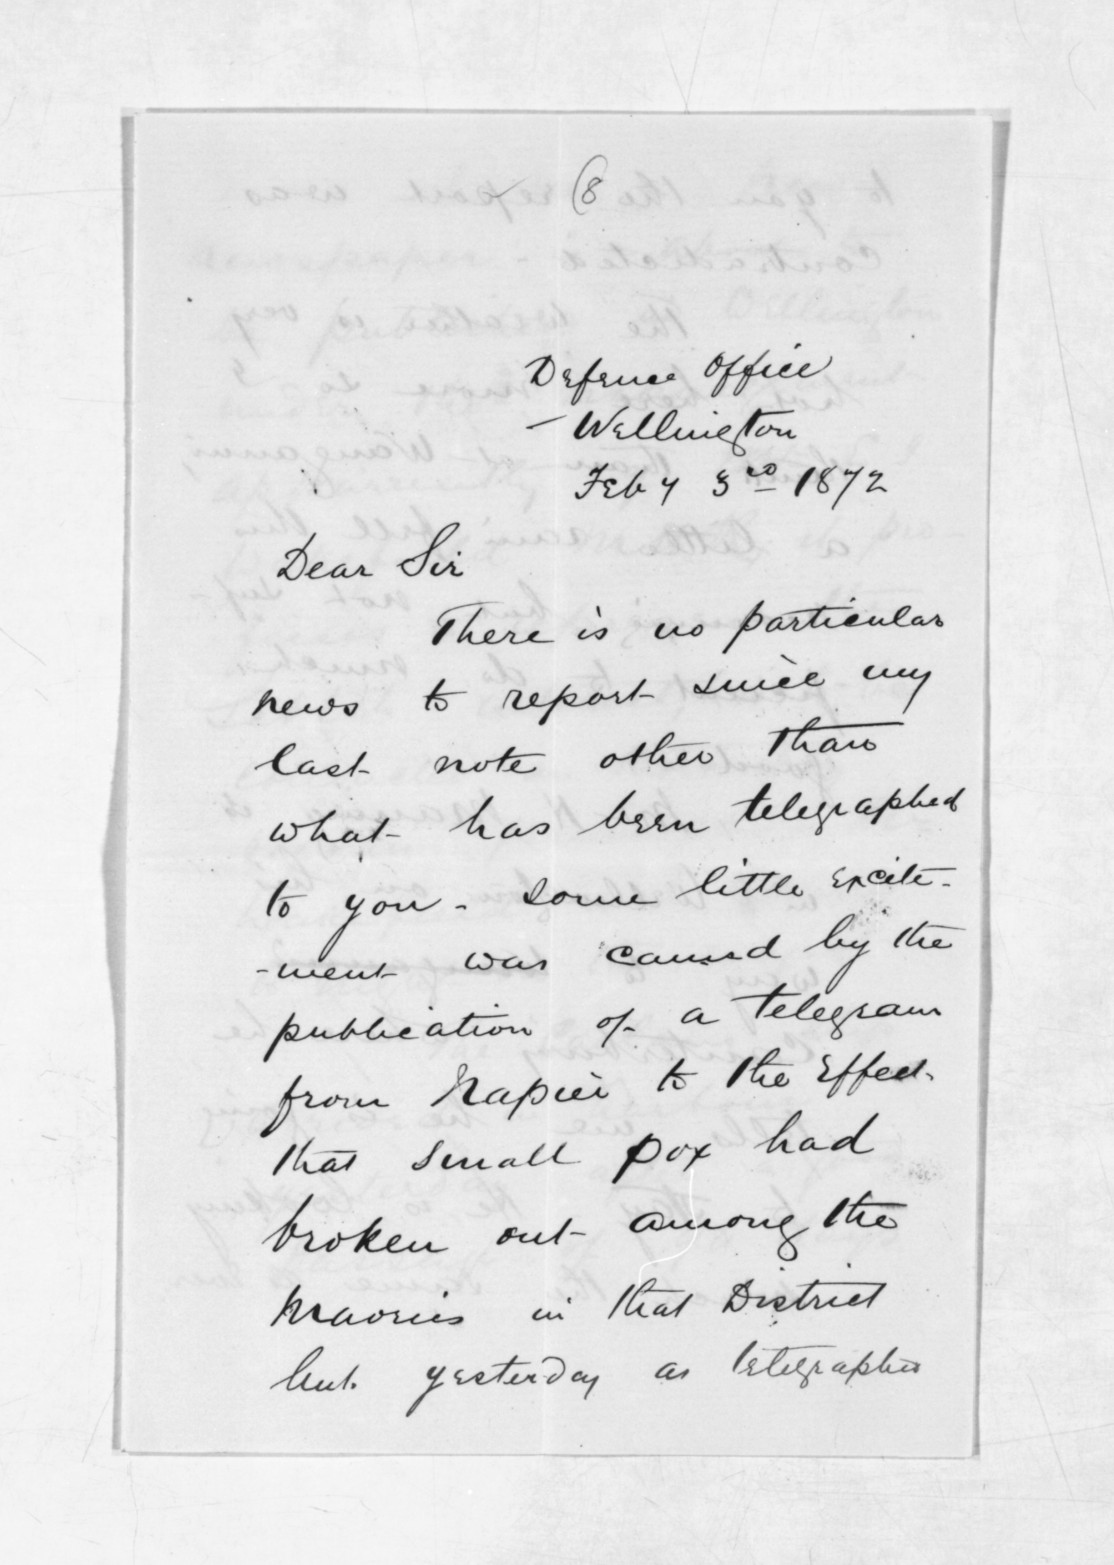 (8
Defence Office
Wellington
Feby 3rd 1872
Dear Sir
There is no particular
news to report since my
last note other than
what has been telegraphed
to you - some little excite-
-ment was caused by the
publication of a telegram
from Napier to the Effect
that small pox had
broken out among the
Maories in that District
but yesterday as telegraphed